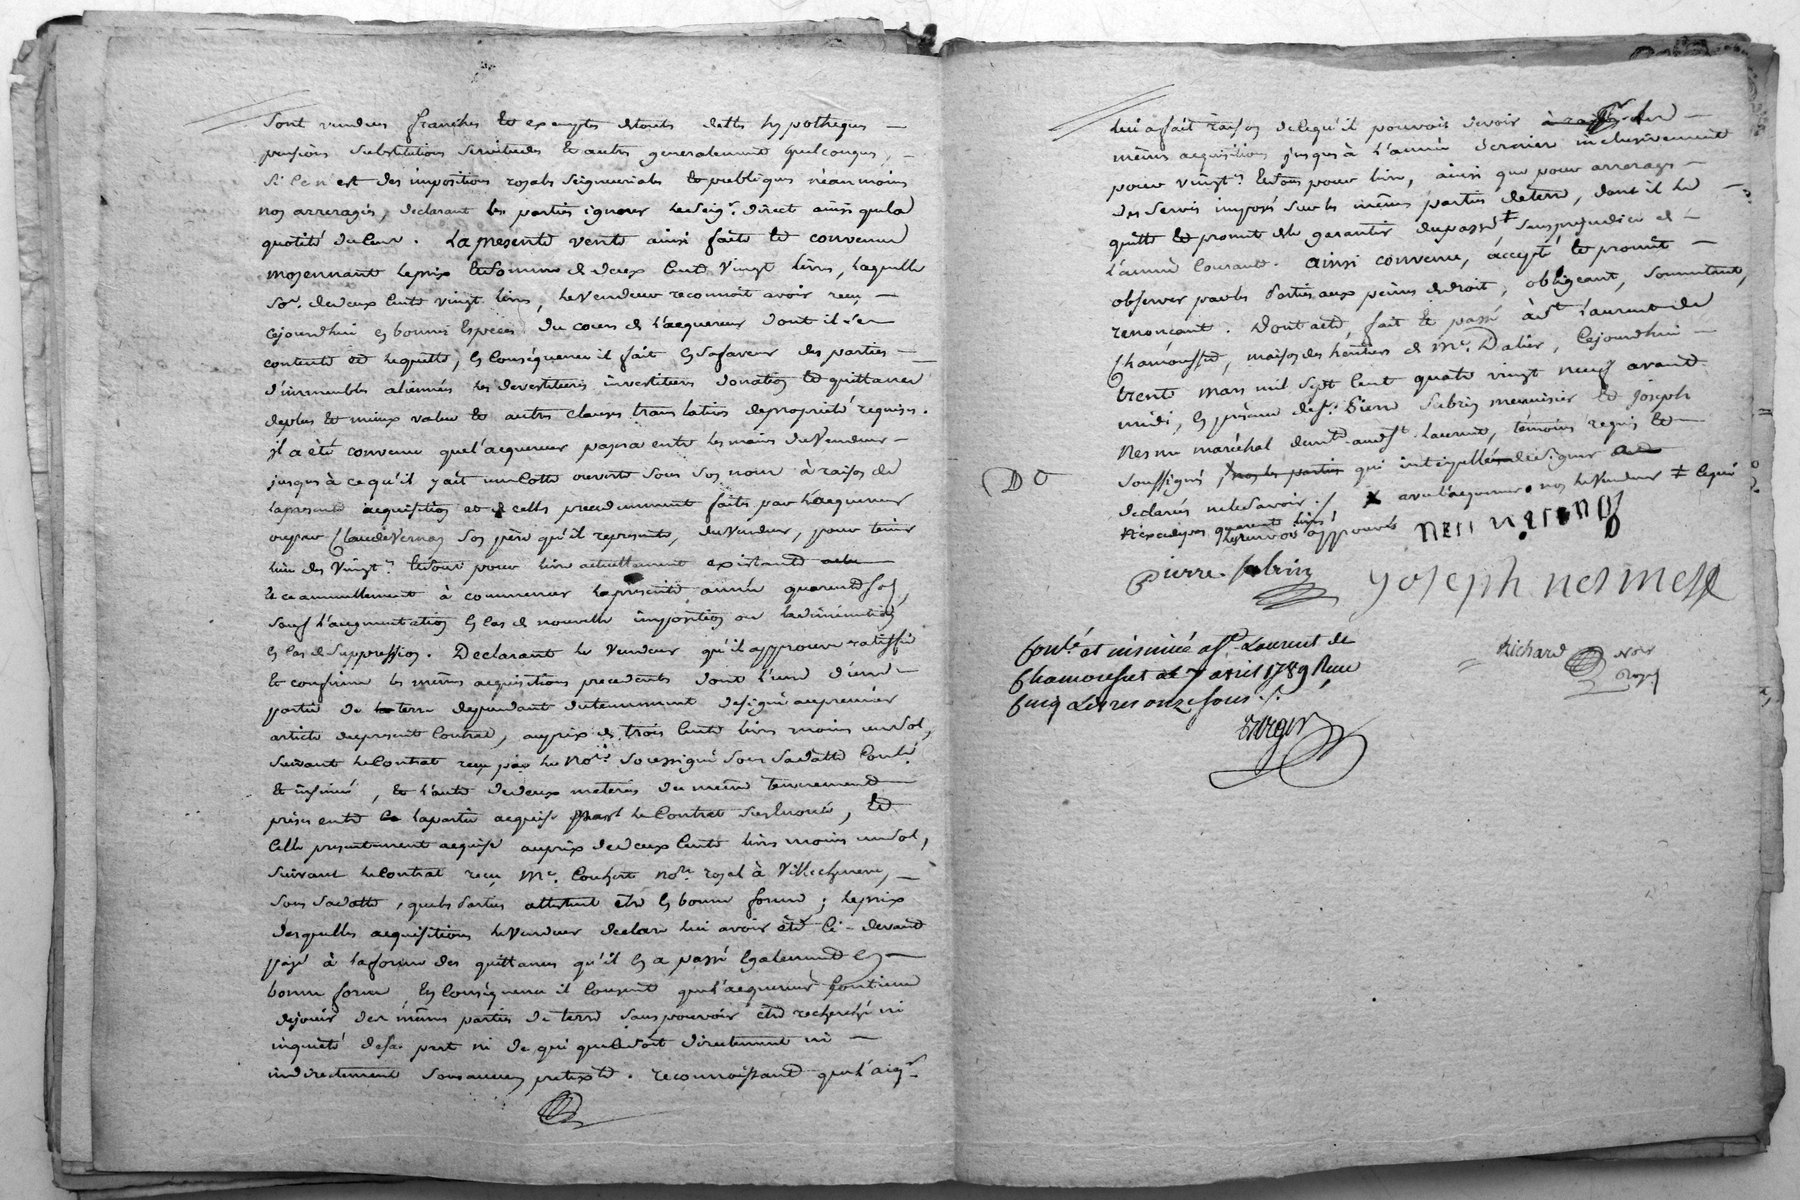 sont vendues franches et exemptes de touts dettes hypotheques
pensions substitutions servitudes et autres generalement quelconques,
si ce n'est des impositions royales seigneuriales et publiques néanmoins
nos arreragés, declarant les parties ignorer le Seigr. direct ainsi que la
quotité du cens. La presente vente ainsi faite et convenue
moyennant le prix et somme de deux cent vingt livres, laquelle
soe. de deux cents vingt livres, le vendeur reconnoit avoir reçu
cejourdhui en bonnes especes du cours de l'acquereur dont il s'en
contente et le quitte, en conséquence il fait en sa faveur des parties
d'immeubles alienées les devestitures investitures donation et quittance
de plus et mieux value et autres clauses translatives de propriété requises.
il a été convenu que l'acquereur payera entre les mains du vendeur
jusques à ce qu'il y ait une cotte ouverte sous son nom à raison de
la presente acquisition et de celles precedemment faites par l'acquereur
ou par Claude Vernay son père qu'il represente, du vendeur, pour tenir
lieu des vingte. et sous pour livre actuellement existants
et ce annuellement à commencer la presente année quarente sols,
sauf l'augmentation en cas de nouvelle imposition ou la diminution
en cas de suppression. Declarant le vendeur qu'il approuve ratiffie
et confirme les mêmes acquisitions precedentes dont l'une d'une
partie de terre dependant du tenement designé au premier
article du present contrat, au prix de trois cents livres moins un sol,
suivant le contrat reçu par le nore. soussigné sous sa datte controlé
et insinué, et l'autre de deux meterés du même tenement
prises entre la partie acquise par le contrat susénoncé, et
celle presentement acquise au prix de deux cents livres moins un sol,
suivant le contrat reçu Me. nore. royal à Villechenève,
sous sa datte, que les parties attestent etre en bonne forme; le prix
desquelles acquisitions le vendeur declare lui avoir été ci-devant
payé à la forme des quittances qu'il en a passé egalement en
bonne forme en conséquence il consent que l'acquereur continue
de jouir des mêmes parties de terre sans pouvoir etre recherché ni
inquieté de sa part ni de qui que ce soit directement ni
indirectement sous aucun pretexte. reconnoissant que l'aiqr.
lui a fait raison de ce qu'il pouvoit devoir des
mêmes acquisitions jusques à l'année derniere inclusivement
pour vingte. et sous pour livre, ainsi que pour arrerages
des servis imposés sur les mêmes parties de terre, dont il le
quitte et promet de le garantir du passé sans prejudice de
l'année courante. ainsi convenu, accepté et promit
observer par les parties aux peines de droit, obligeant, soumettant,
renonçant. Dont acte, fait et passé à St. Laurent de
Chamousset, maison des heritiers de Me. Dalier, cejourdhui
trente mars mil sept cent quatre vingt neuf avant
midi, en présence de sr. Pierre Subrin menuisier et Joseph
Nesme maréchal demt. audt. St. Laurent, témoins requis et
soussignés non les parties qui interpellées de signer
declarés ne le savoir ./ X avec l'acquereur non le vendeur # lequel
quarente livres
approuvé
Pierre Subrin
Joseph nesmess
Richard nore
royal
Conlé. et insinué a St. Laurent de
Chamousset le 7 avril 1789 Reçu
Cinq Livres onze sous ./.